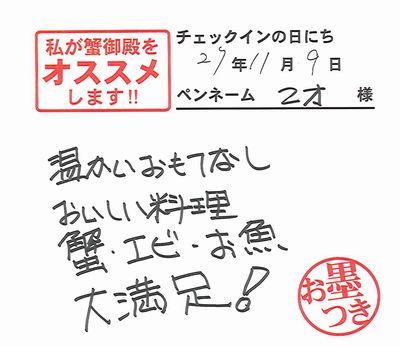 私が蟹御殿を
オススメ
します!!
チェックインの日にち
27年11月9日
ペンネーム 2才 様
温かいおもてなし
おいしい料理
蟹・エビ・お魚
大満足!
お墨つき